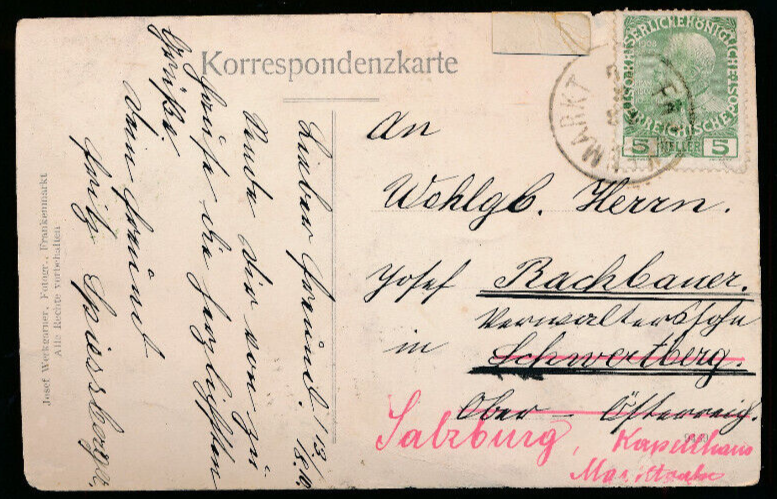 Korrespondenzkarte
KAISERLICHE KÖNIGLICHE
ÖSTERREICHISCHE POST
1908
5 HELLER 5
MARKT
An
Wohlgb. Herrn.
Josef Bachbauer.
Verwalterssohn
in Schwertberg.
Ober - Österreich.
Salzburg, Kapellhaus
Lieber Freund! 13/
Sende dir von zu
Hause die herzlichsten
Grüße.
Dein Freund
Fritz
Josef Werkgarner, Fotogr., Frankenmarkt
Alle Rechte vorbehalten